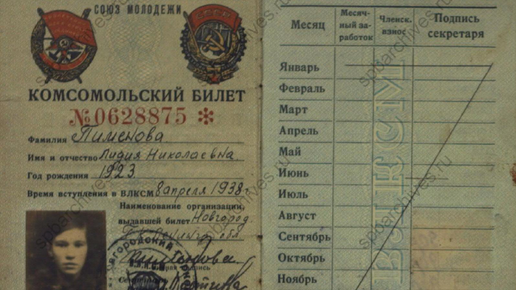 СОЮЗ МОЛОДЕЖИ
КОМСОМОЛЬСКИЙ БИЛЕТ
№0628875 *
Фамилия Пименова
Имя и отчество Лидия Николаевна
Год рождения 1923
Время вступления в ВЛКСМ 8 апреля 1938 г
Наименование организации,
выдавшей билет Новгород
обл
Месяц
Месяч-
ный за-
работок
Членск.
взнос
Подпись
секретаря
Январь
Февраль
Март
Апрель
Май
Июнь
Июль
Август
Сентябрь
Октябрь
Ноябрь
ВЛКСМ
spbarchives.ru